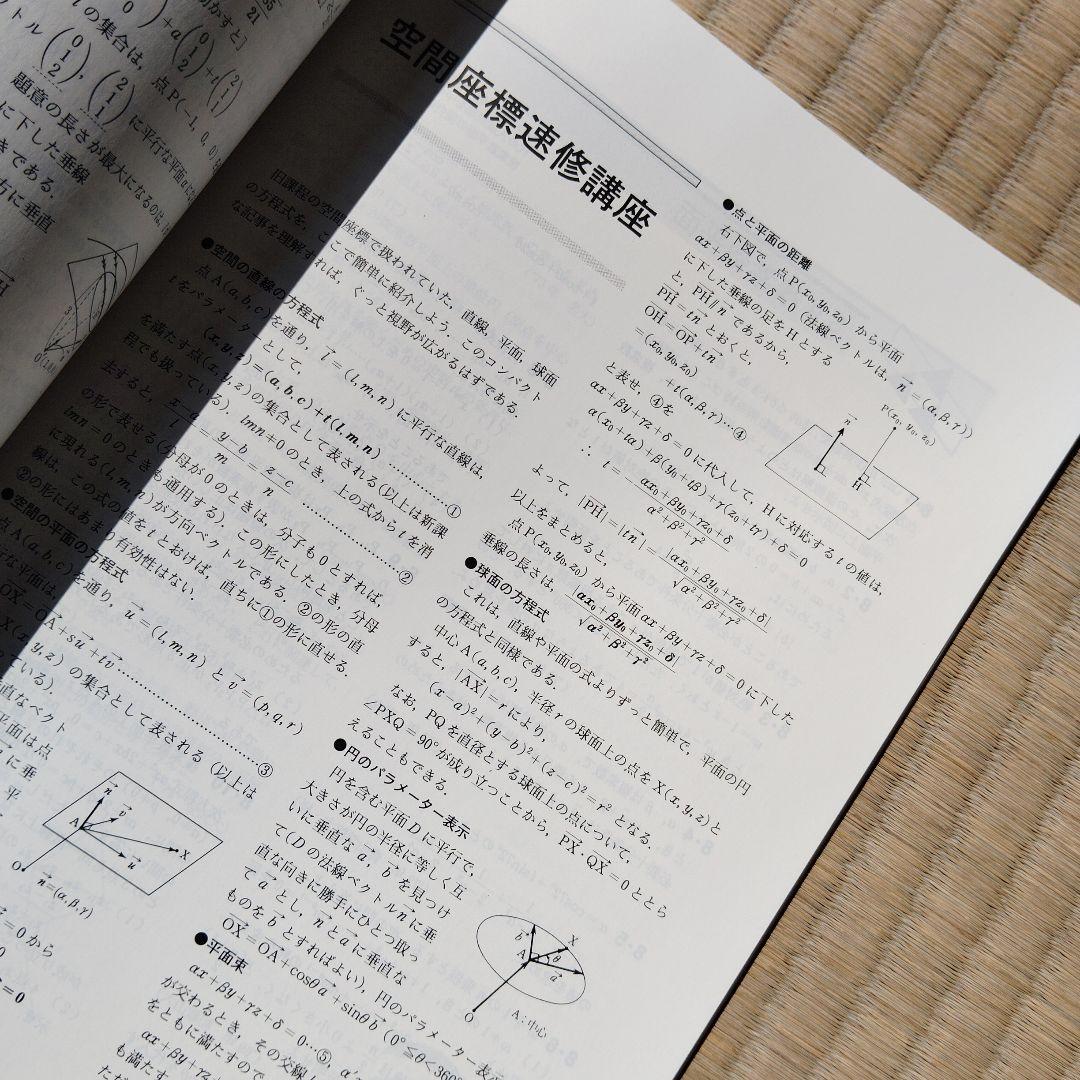 トル (0 1 2), (2 1 1) に平行な平面αに
題意の長さが最大になるのは,
に下した垂線
きである.
方に垂直
空間座標速修講座
旧課程の空間座標で扱われていた, 直線, 平面, 球面
の方程式を, ここで簡単に紹介しよう. このコンパクト
な記事を理解すれば, ぐっと視野が広がるはずである.
●空間の直線の方程式
点A(a, b, c)を通り, l→=(l, m, n)に平行な直線は,
tをパラメーターとして,
(x, y, z)=(a, b, c)+t(l, m, n) …………①
を満たす点(x, y, z)の集合として表される(以上は新課
程でも扱っている). lmn≠0のとき, 上の式からtを消
去すると,
(x-a)/l = (y-b)/m = (z-c)/n …………②
の形で表せる(分母が0のときは, 分子も0とすれば,
lmn=0のときも通用する). この形にしたとき, 分母
に現れる(l, m, n)が方向ベクトルである. ②の形の直
線は, この式の値をtとおけば, 直ちに①の形に直せる.
②の形にはあまり有効性はない.
●空間の平面の方程式
点A(a, b, c)を通り, u→=(l, m, n)とv→=(p, q, r)
な平面は,
OX→=OA→+su→+tv→ …………③
X(x, y, z)の集合として表される(以上は
っている).
直なベクト
平面は点
に垂
平
n→
v→
A
X
u→
O
n→=(α, β, γ)
=0から
=0
●点と平面の距離
右下図で, 点P(x₀, y₀, z₀)から平面
αx+βy+γz+δ=0(法線ベクトルは, n→=(α, β, γ))
に下した垂線の足をHとする
と, PH→∥n→であるから,
PH→=tn→とおくと,
OH→=OP→+tn→
=(x₀, y₀, z₀)
+t(α, β, γ)…④
と表せ, ④を
αx+βy+γz+δ=0に代入して, Hに対応するtの値は,
α(x₀+tα)+β(y₀+tβ)+γ(z₀+tγ)+δ=0
∴ t=-(αx₀+βy₀+γz₀+δ)/(α²+β²+γ²)
よって, |PH→|=|tn→|=|αx₀+βy₀+γz₀+δ|/√(α²+β²+γ²)
以上をまとめると,
点P(x₀, y₀, z₀)から平面αx+βy+γz+δ=0に下した
垂線の長さは, |αx₀+βy₀+γz₀+δ|/√(α²+β²+γ²)
n→
P(x₀, y₀, z₀)
H
●球面の方程式
これは, 直線や平面の式よりずっと簡単で, 平面の円
の方程式と同様である.
中心A(a, b, c), 半径rの球面上の点をX(x, y, z)と
すると, |AX→|=rにより,
(x-a)²+(y-b)²+(z-c)²=r²となる.
なお, PQを直径とする球面上の点について,
∠PXQ=90°が成り立つことから, PX→・QX→=0ととら
えることもできる.
●円のパラメーター表示
円を含む平面Dに平行で,
大きさが円の半径に等しく互
いに垂直なa→, b→を見つけ
て(Dの法線ベクトルn→に垂
直な向きに勝手にひとつ取っ
てa→とし, n→とa→に垂直な
ものをb→とすればよい), 円のパラメーター表示
OX→=OA→+cosθa→+sinθb→ (0°≦θ<360°
b→
X
A
θ
a→
O
A:中心
●平面束
αx+βy+γz+δ=0…⑤,
が交わるとき, その交線
をともに満たすので
αx+βy+γz
も満たす